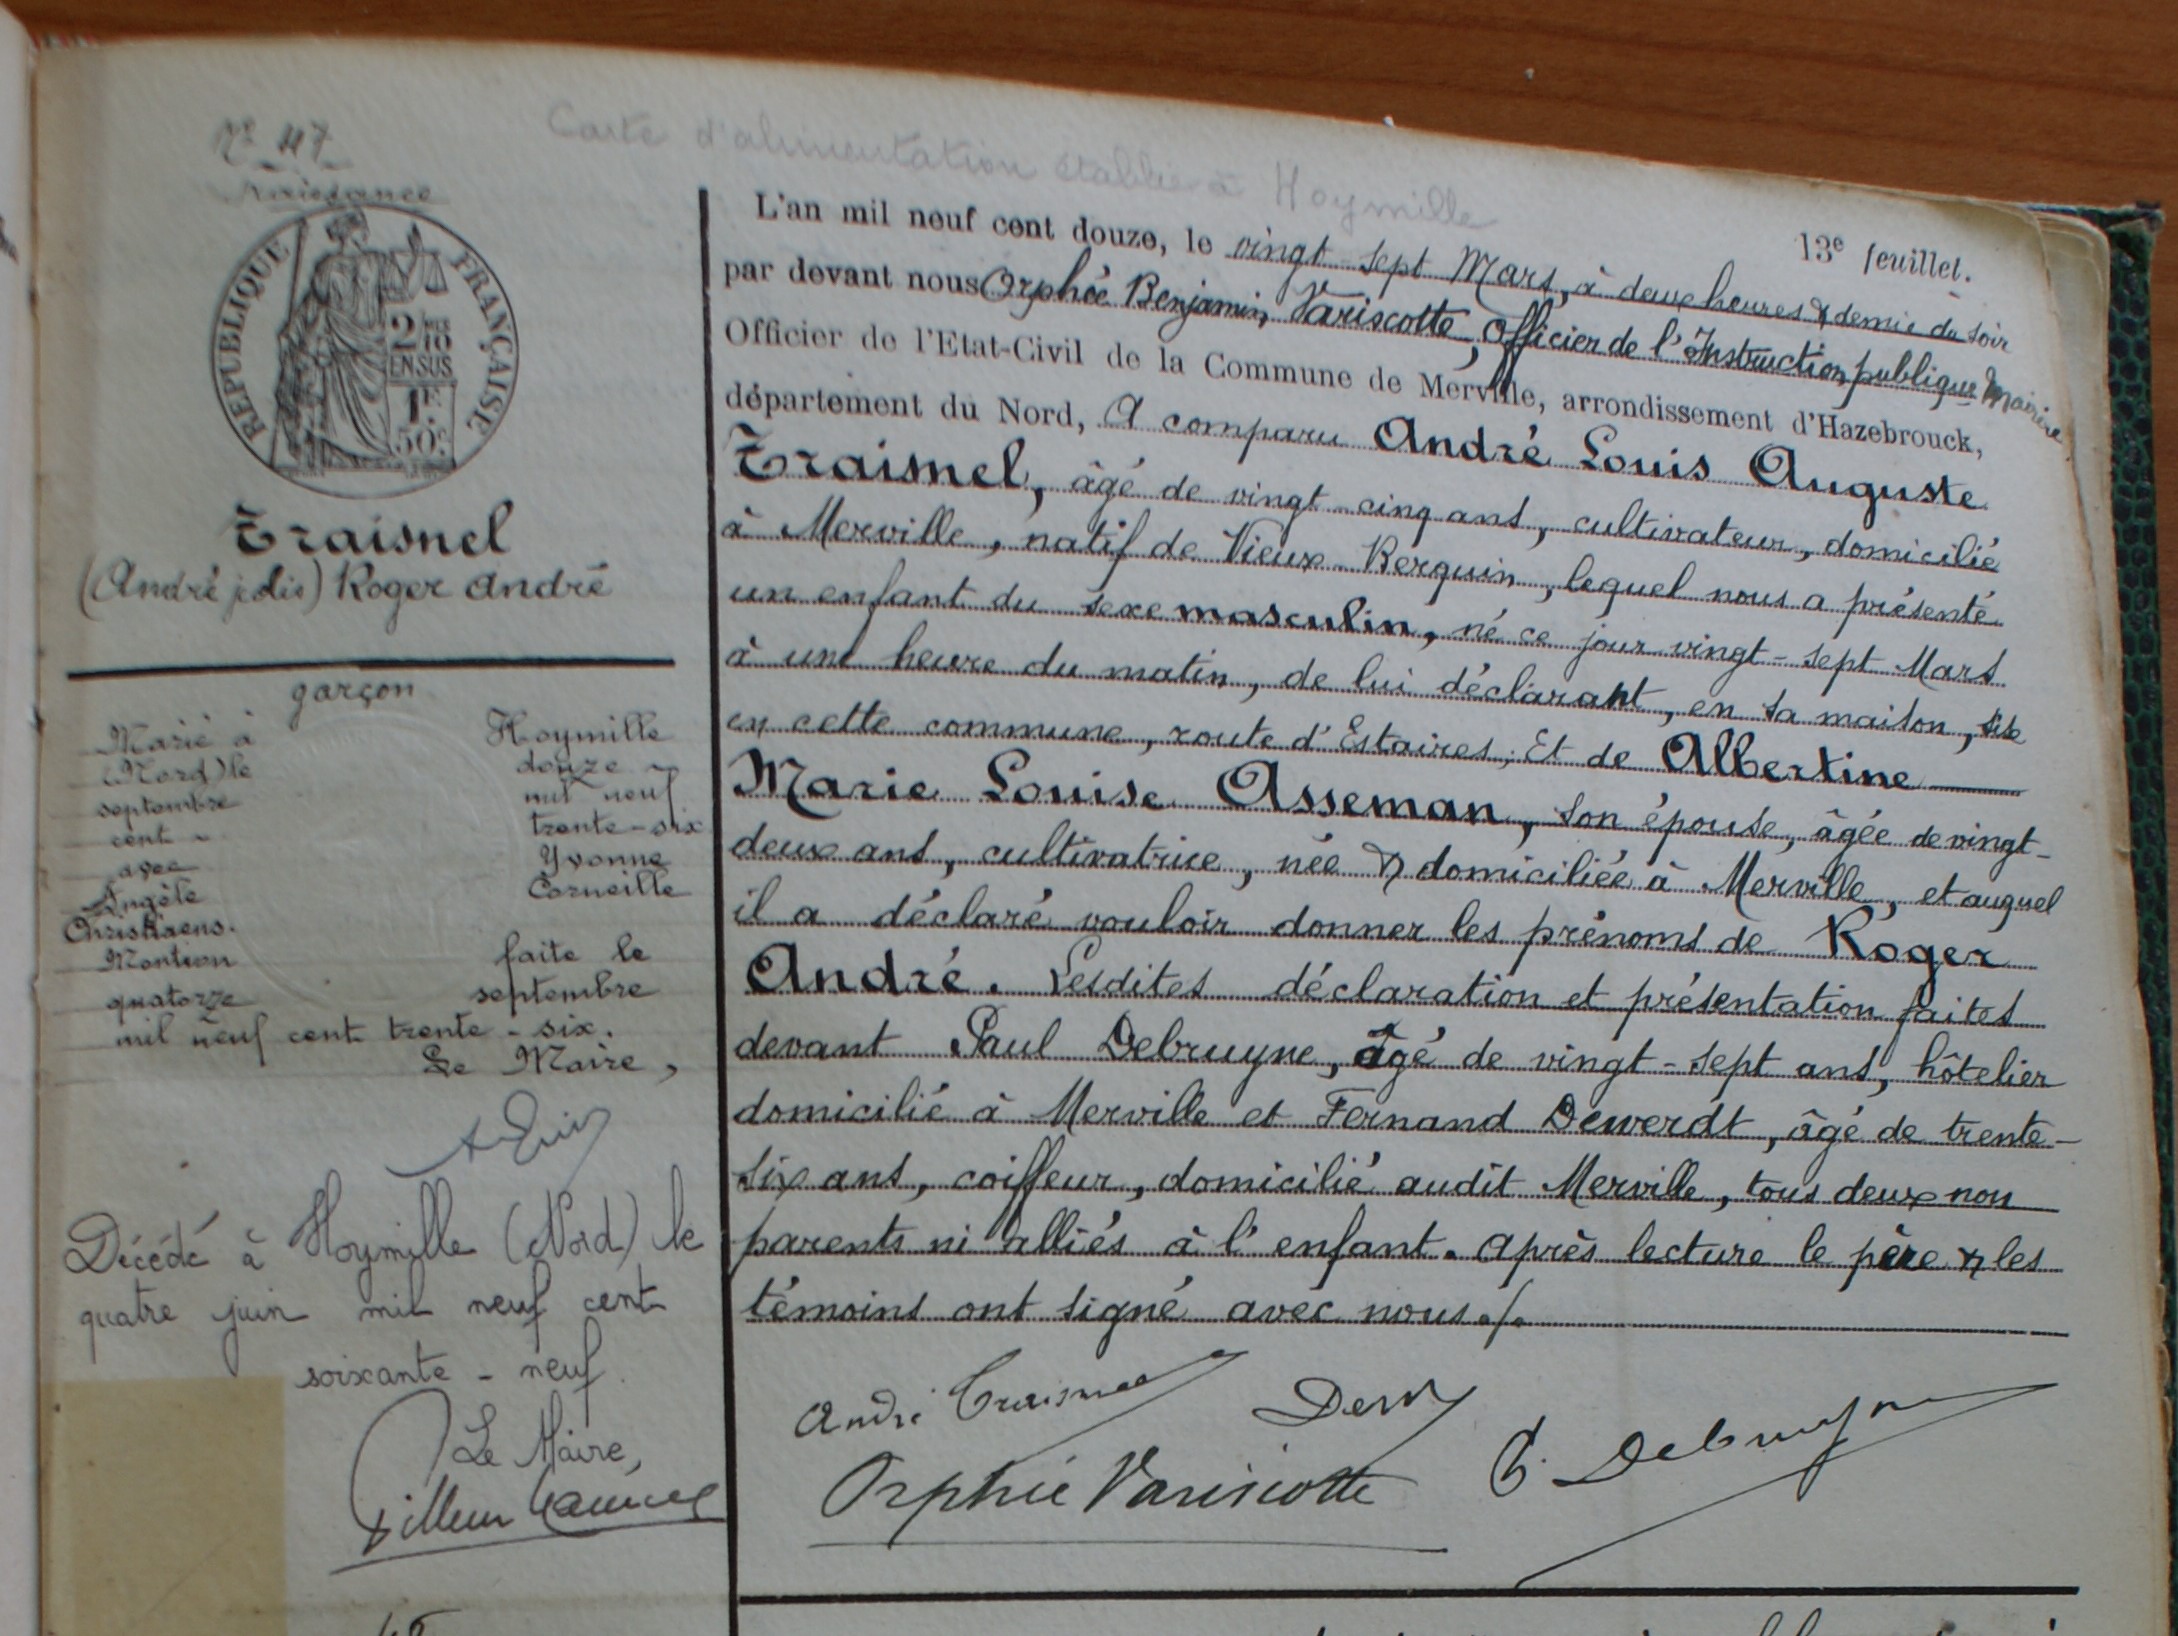 Carte d'alimentation établie à Hoymille
Nº 47
Naissance
RÉPUBLIQUE FRANÇAISE
2/10
EN SUS
1F
50c
Traisnel
(André jadis) Roger André
garçon
Marié à Hoymille
(Nord) le douze
septembre mil neuf
cent trente-six
avec Yvonne
Angèle Corneille
Christiaens.
Mention faite le
quatorze septembre
mil neuf cent trente-six.
Le Maire,
Décédé à Hoymille (Nord) le
quatre juin mil neuf cent
soixante-neuf.
Le Maire,
13e feuillet.
L'an mil neuf cent douze, le vingt-sept Mars, à deux heures & demie du soir
par devant nous Orphée Benjamin Variscotte, Officier de l'Instruction publique Maire
Officier de l'Etat-Civil de la Commune de Merville, arrondissement d'Hazebrouck,
département du Nord, A comparu André Louis Auguste
Traisnel, âgé de vingt-cinq ans, cultivateur, domicilié
à Merville, natif de Vieux-Berquin, lequel nous a présenté
un enfant du sexe masculin, né ce jour vingt-sept Mars
à une heure du matin, de lui déclarant, en sa maison, sise
en cette commune, route d'Estaires; Et de Albertine
Marie Louise Asseman, son épouse, âgée de vingt-
deux ans, cultivatrice, née & domiciliée à Merville, et auquel
il a déclaré vouloir donner les prénoms de Roger
André. Lesdites déclaration et présentation faites
devant Paul Debruyne, âgé de vingt-sept ans, hôtelier
domicilié à Merville et Fernand Dewerdt, âgé de trente-
six ans, coiffeur, domicilié audit Merville, tous deux non
parents ni alliés à l'enfant. Après lecture le père & les
témoins ont signé avec nous ./.
André Traisnel
Orphée Variscotte
P. Debruyne